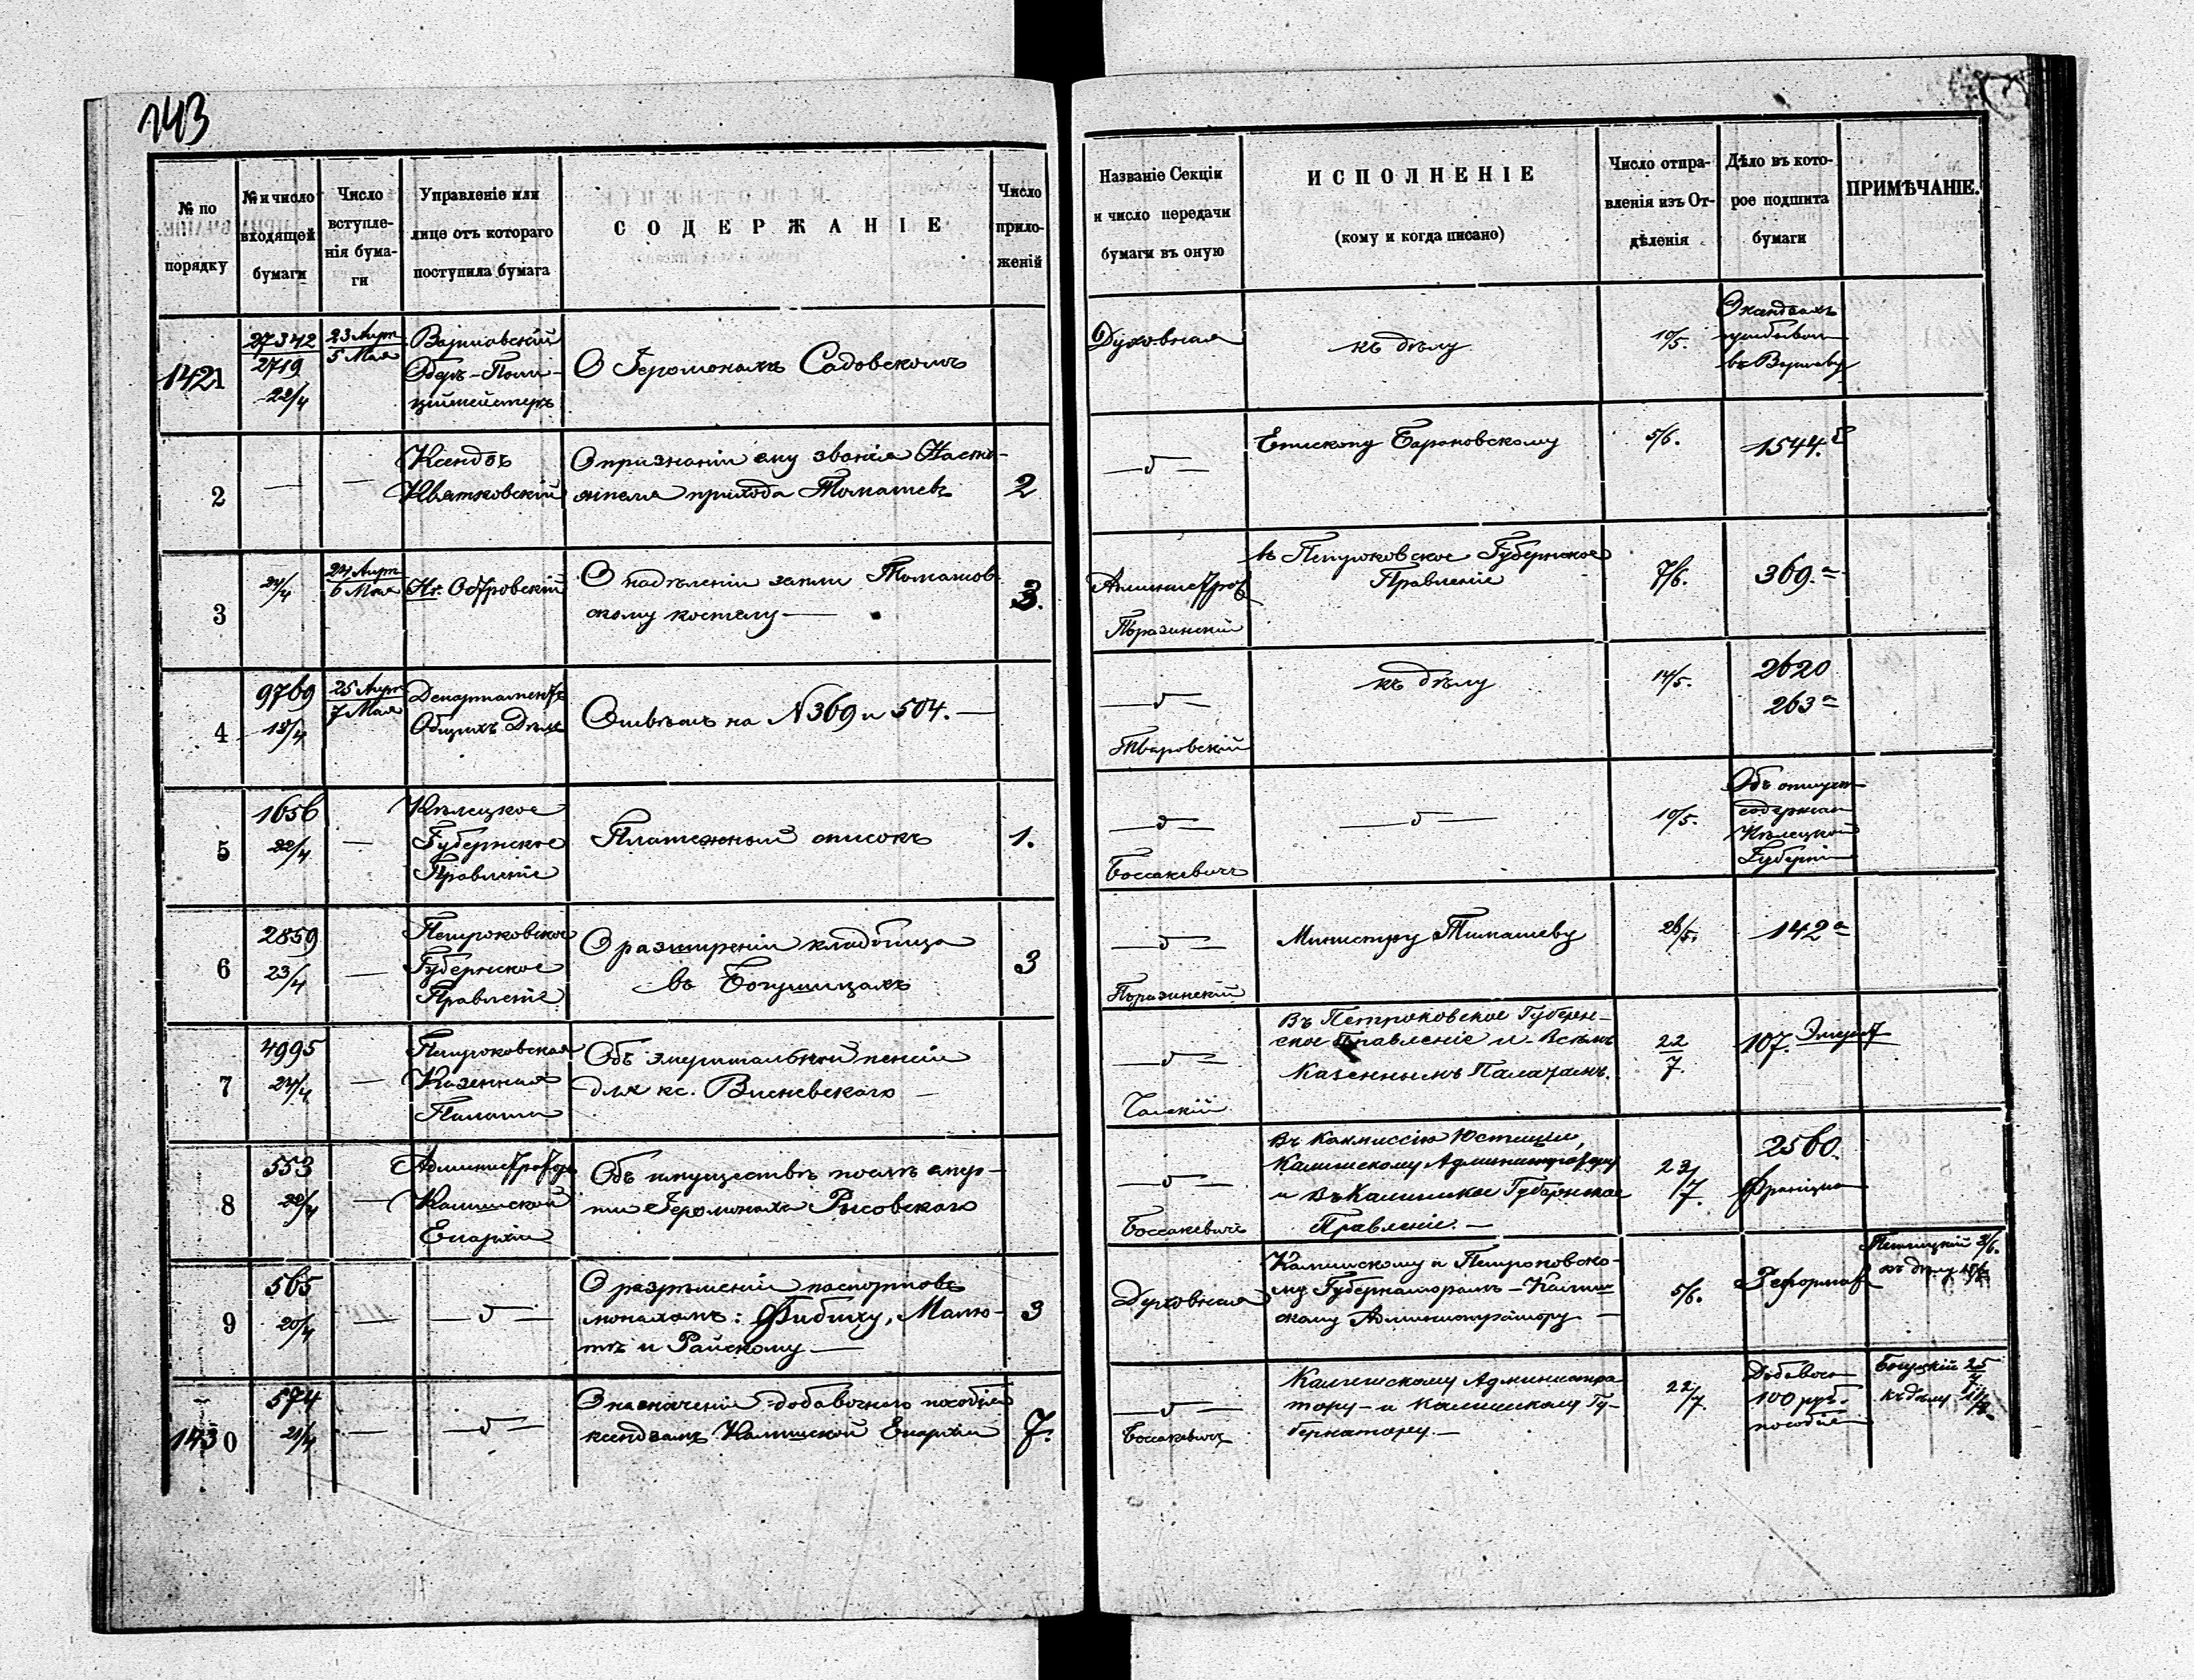 143
№ по порядку
№ и число входящей бумаги
Число вступленія бумаги
Управленіе или лице отъ котораго поступила бумага
СОДЕРЖАНІЕ
Число приложеній
Названіе Секціи и число передачи бумаги въ оную
ИСПОЛНЕНІЕ
(кому и когда писано)
Число отправленія изъ Отдѣленія
Дѣло въ которое подшита бумаги
ПРИМѢЧАНІЕ.
1421
27342
2719
22/4
23 Апр
5 Мая
Варшавскій
Оберъ-Поли-
циймейстеръ
О Іеромонахѣ Садовскомъ
Духовная
къ дѣлу
10/5.
въ Варшаву
2
—
—
Ксендзъ
Квятковскій
О признаніи ему званія Насто-
ятеля прихода Томашевъ
2
—〃—
Епископу Барановскому
5/6.
1544.
3
24/4
24 Апр
6 Мая
Кс. Островскій
О надѣленіи земли Томашов-
скому костелу —
3.
Администров
въ Петроковское Губернское
Правленіе
7/6.
369.а
4
9769
18/4
25 Апр
7 Мая
Департаментъ
Общихъ Дѣлъ
Отвѣтъ на N 369 и 504. —
—〃—
Тваровскій
къ дѣлу
14/5.
2620
263 а
5
1656
22/4
—
Кѣлецкое
Губернское
Правленіе
Платежный списокъ
1.
—〃—
Боссакевичъ
—〃—
10/5.
Объ отпускѣ
содержан
Кѣлецкой
Губерніи
6
2859
23/4
—
Петроковское
Губернское
Правленіе
О разширеніи кладбища
въ Богушицахъ
3
—〃—
Министру Тимашеву
26/5.
142 а
7
4995
24/4
—
Петроковская
Казенная
Палата
Объ эмеритальной пенсіи
для кс. Висневскаго —
—〃—
Въ Петроковское Губерн-
ское Правленіе и Всѣмъ
Казеннымъ Палатамъ.
22/7.
107. Эмерит
8
553
22/4
—
Администраторъ
Калишской
Епархіи
Объ имуществѣ послѣ смер-
ти Іеромонаха Рысовскаго
—〃—
Боссакевичъ
Въ Коммиссію Юстиціи,
Калишскому Администратору
и въ Калишское Губернское
Правленіе. —
23/7.
2560.
9
565
20/4
—
—〃—
О разрѣшеніи паспортовъ
монахамъ: Фибиху, Малю-
тѣ и Райскому —
3
Духовная
Калишскому и Петроковско-
му Губернаторамъ - Калиш-
скому Администратору —
5/6.
Реформат
1430
574
21/4
—
—〃—
О назначеніи добавочнаго пособія
ксендзамъ Калишской Епархіи
7.
—〃—
Боссакевичъ
Калишскому Администра
тору - и Калишскому Гу-
бернатору. —
22/7.
Добавоч
100 руб.
пособіе
къ дѣлу